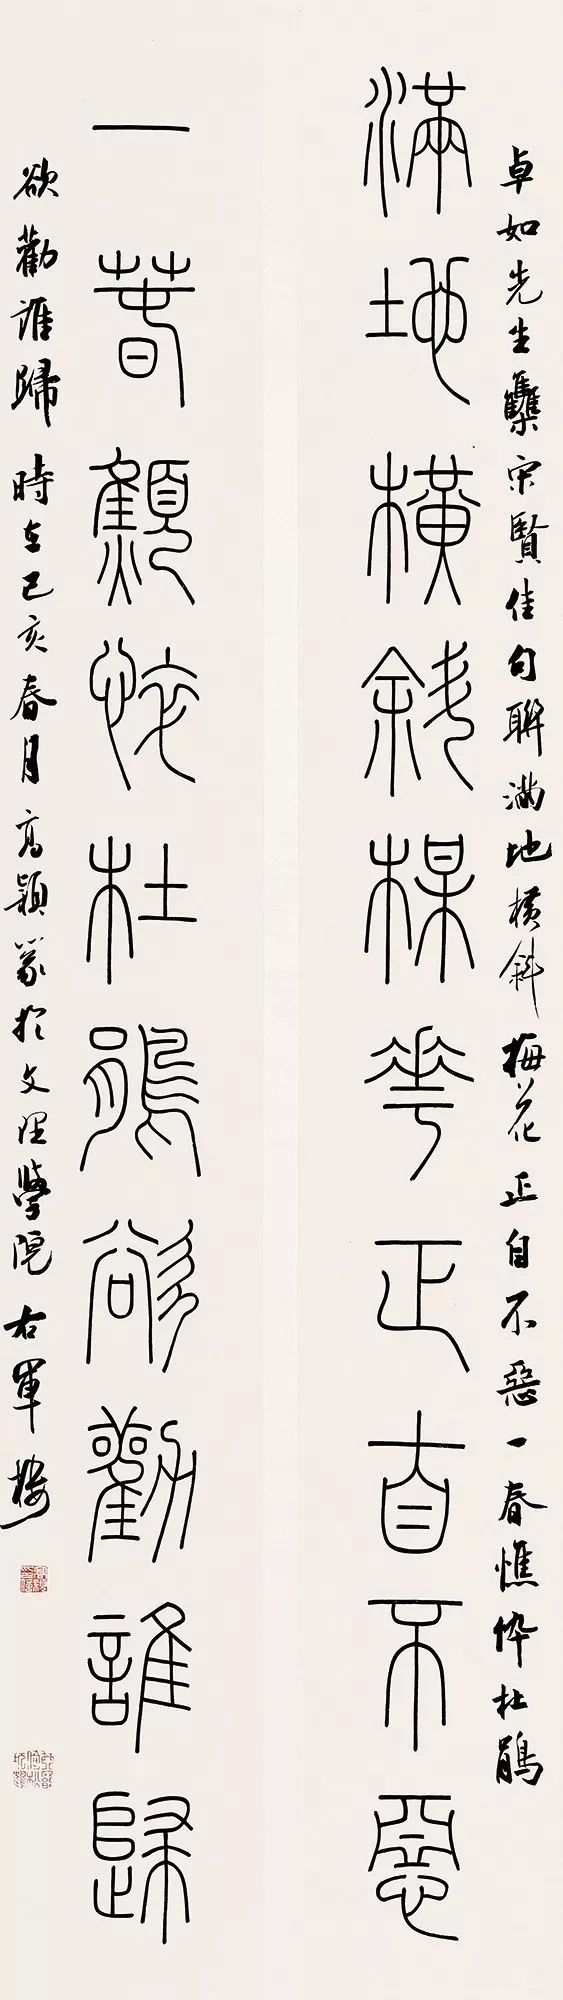 卓如先生雧宋賢佳句聯滿地橫斜梅花正自不惡一春憔悴杜鵑
滿地橫斜楳華正自不惡
一萅顦悴杜鵑欲勸誰歸
欲勸誰歸 時在己亥春月高穎篆於文理學院右軍樓